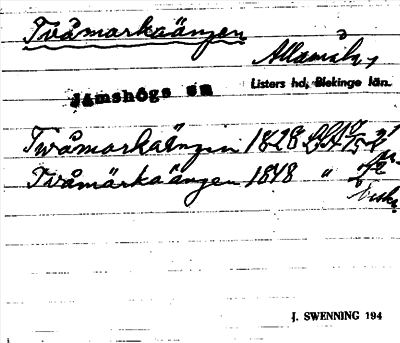 Tvåmarkaängen
Allamåla,
Jämshögs sn Listers hd, Blekinge län.
Tvåmarkaängin 1828
Tvåmärkaängen 1848 "
J. SWENNING 194